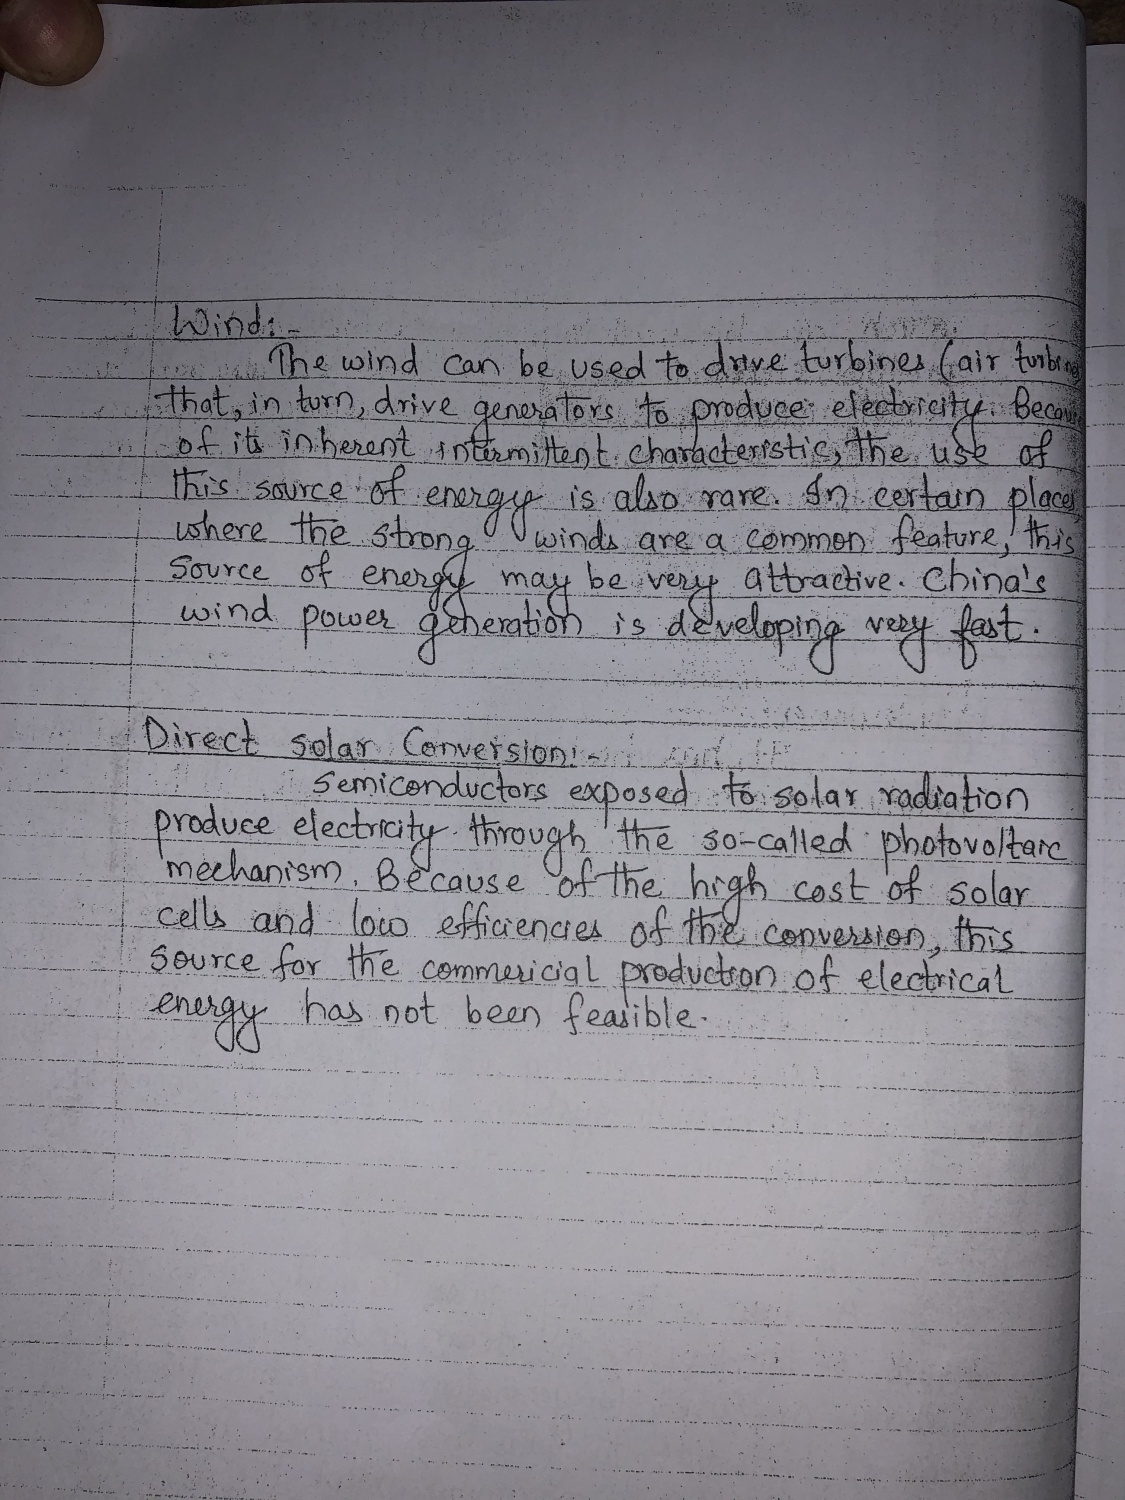 Wind:-
The wind can be used to drive turbines (air turbines
that, in turn, drive generators to produce electricity. Becau
of its inherent intermittent characteristic, the use of
this source of energy is also rare. In certain places
where the strong winds are a common feature, this
Source of energy may be very attractive. China's
wind power generation is developing very fast.
Direct solar Conversion:-
Semiconductors exposed to solar radiation
produce electricity through the so-called photovoltaic
mechanism. Because of the high cost of solar
cells and low efficiencies of the conversion, this
Source for the commericial production of electrical
energy has not been feasible.